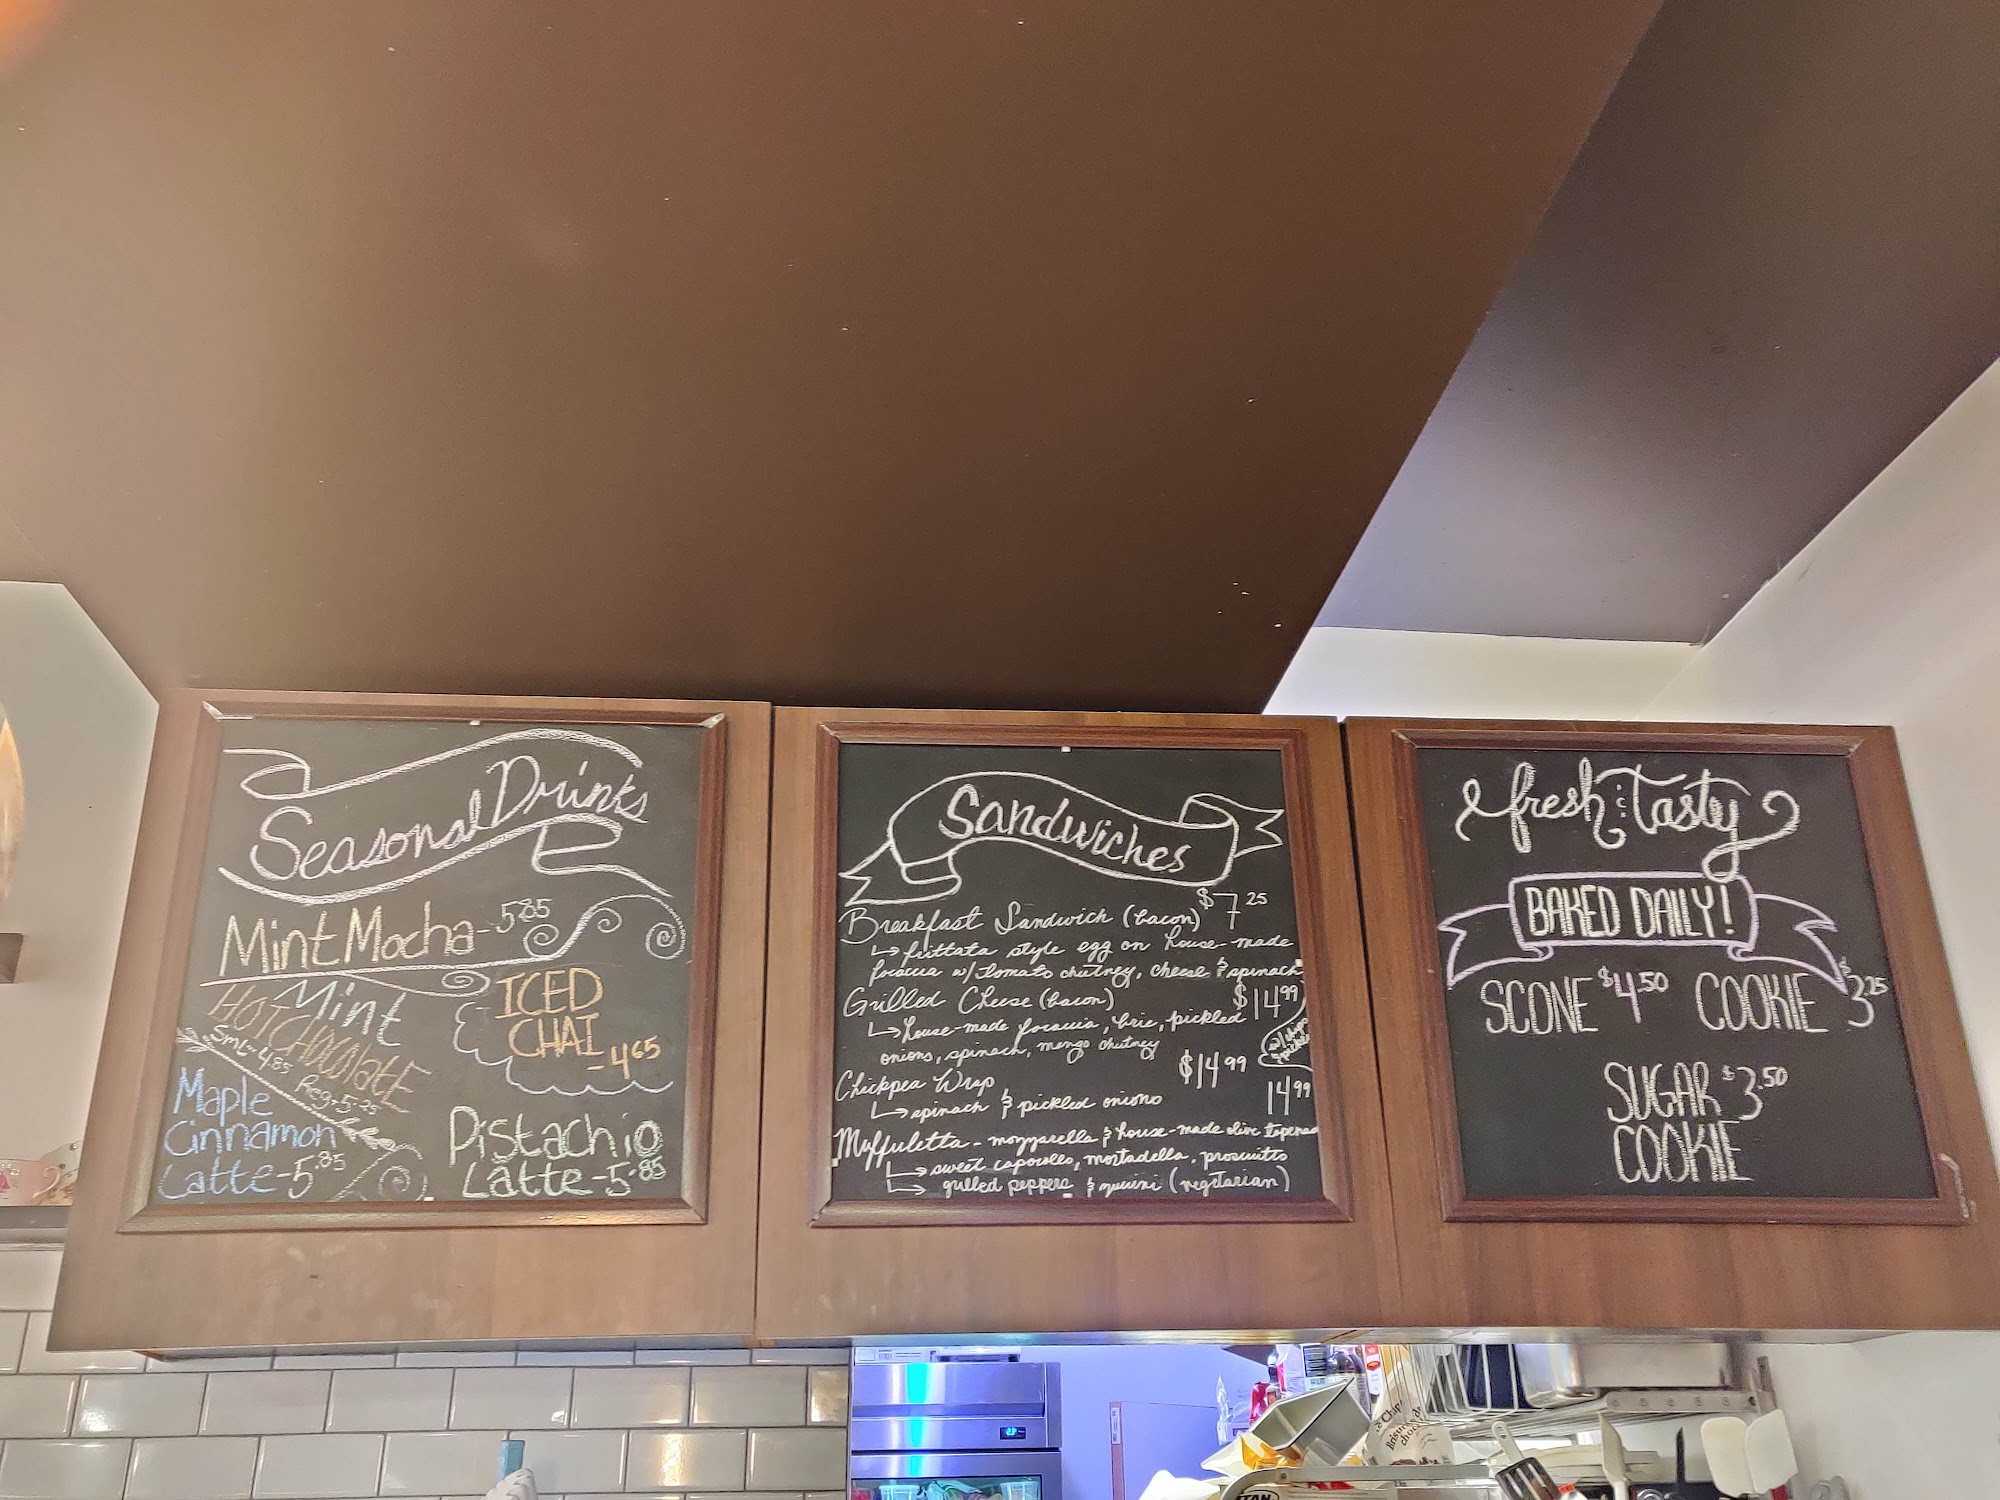 Seasonal Drinks
Mint Mocha - 5.85
Mint
HOT CHOCOLATE
Sml - 4.85 Reg - 5.25
ICED
CHAI
- 4.65
Maple
Cinnamon
Latte - 5.85
Pistachio
Latte - 5.85
Sandwiches
Breakfast Sandwich (bacon) $7.25
frittata style egg on house-made
focaccia w/ tomato chutney, cheese & spinach
Grilled Cheese (bacon) $14.99
house-made focaccia, brie, pickled
onions, spinach, mango chutney
Chickpea Wrap $14.99
spinach & pickled onions
14.99
Muffuletta - mozzarella & house-made olive tapenade
sweet capocollo, mortadella, prosciutto
grilled peppers & zucchini (vegetarian)
fresh & tasty
BAKED DAILY!
SCONE $4.50 COOKIE $3.25
SUGAR $3.50
COOKIE